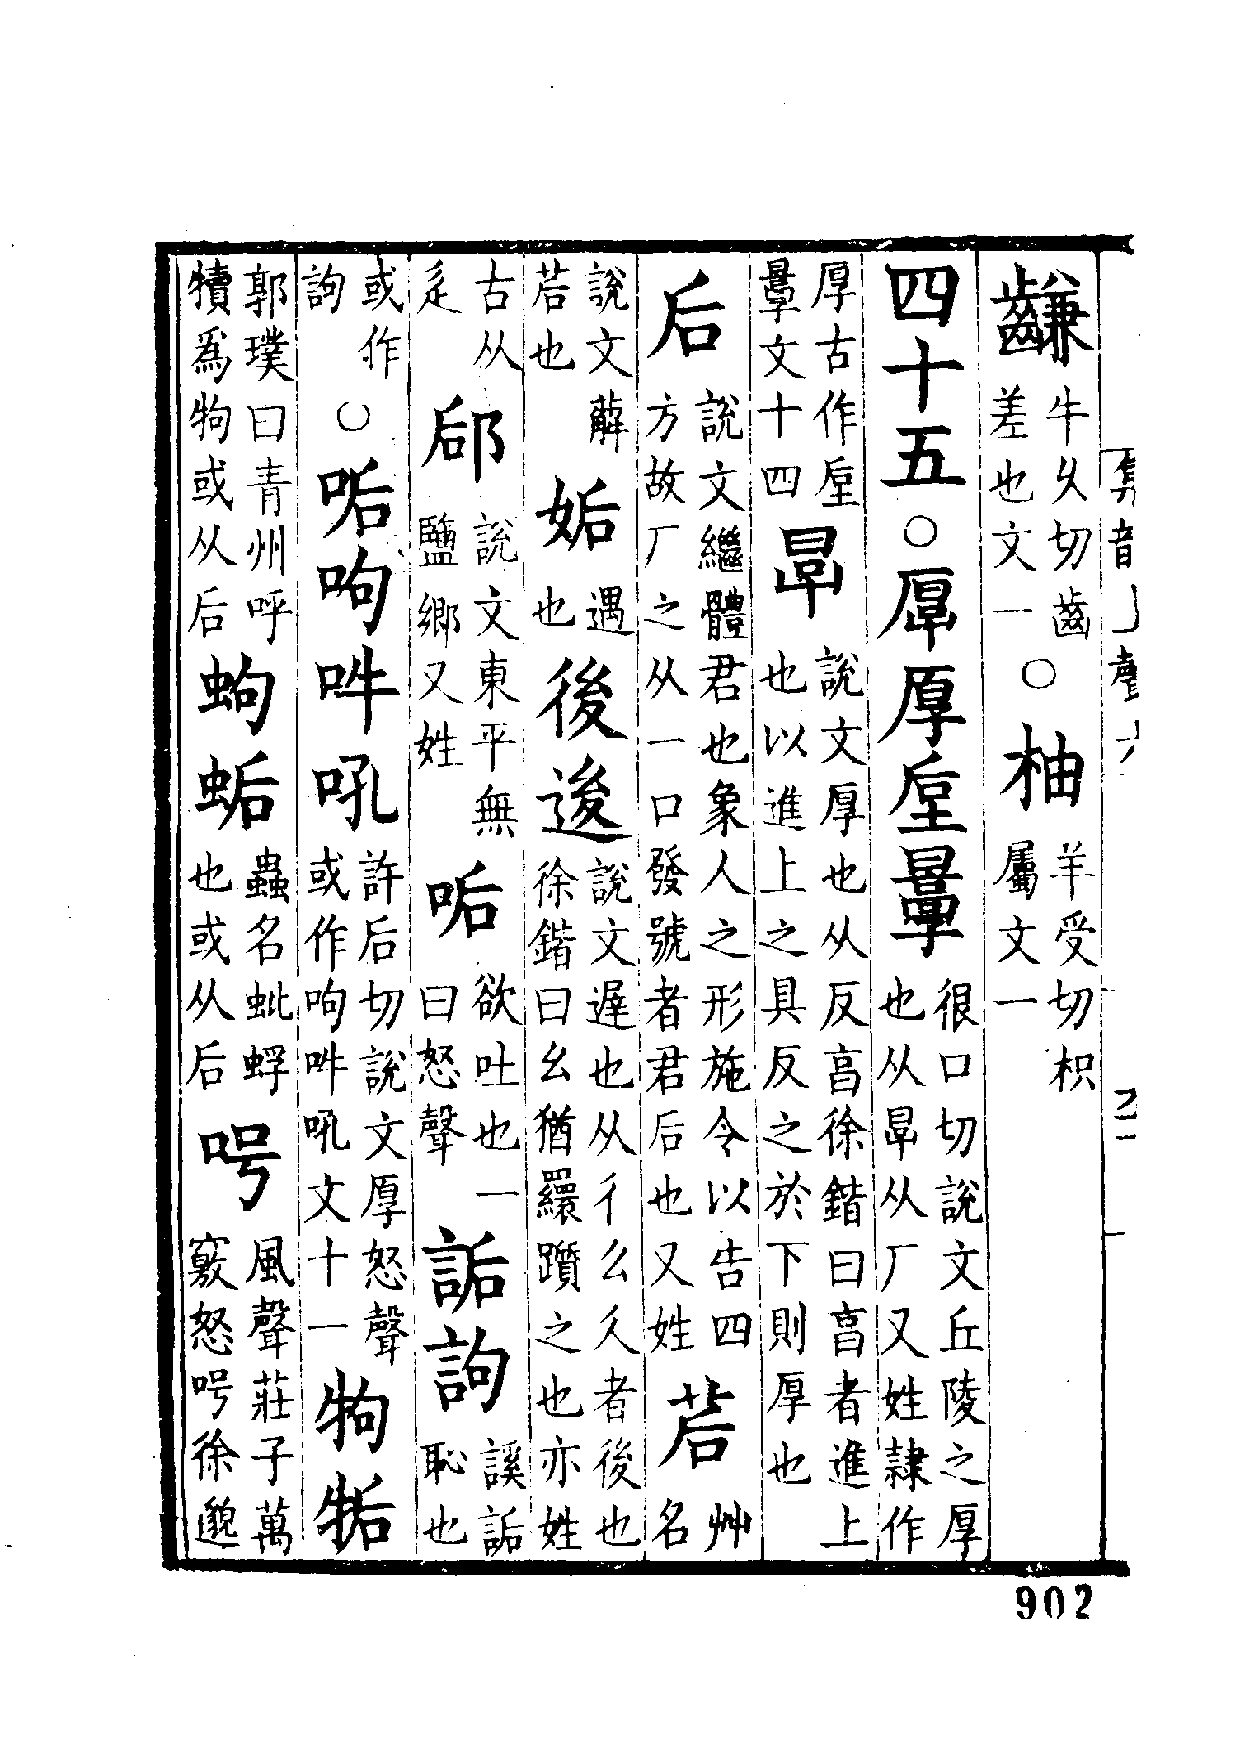 集韻上聲六
齹牛久切齒差也文一○柚羊受切枳屬文一
四十五○厚厚垕㫗很口切說文丘陵之厚也从㫗从厂又姓隸作
厚古作垕𣋡文十四㫗說文厚也从反亯徐鍇曰亯者進上也以進上之具反之於下則厚也
后說文繼體君也象人之形施令以告四方故厂之从一口發號者君后也又姓茩艸名
說文薢茩也姤遇也後逡說文遟也从彳幺夊者後也徐鍇曰幺猶䍀躓之也亦姓
古从辵郈說文東平無鹽鄉又姓㖃欲吐也一曰怒聲詬訽謑詬恥也
或作訽○㖃呴吽吼許后切說文厚怒聲或作呴吽吼文十一㸸㸵
郭璞曰青州呼犢爲㸸或从后蚼蚼蟲名蚍蜉也或从后呺風聲莊子萬竅怒呺徐邈
902